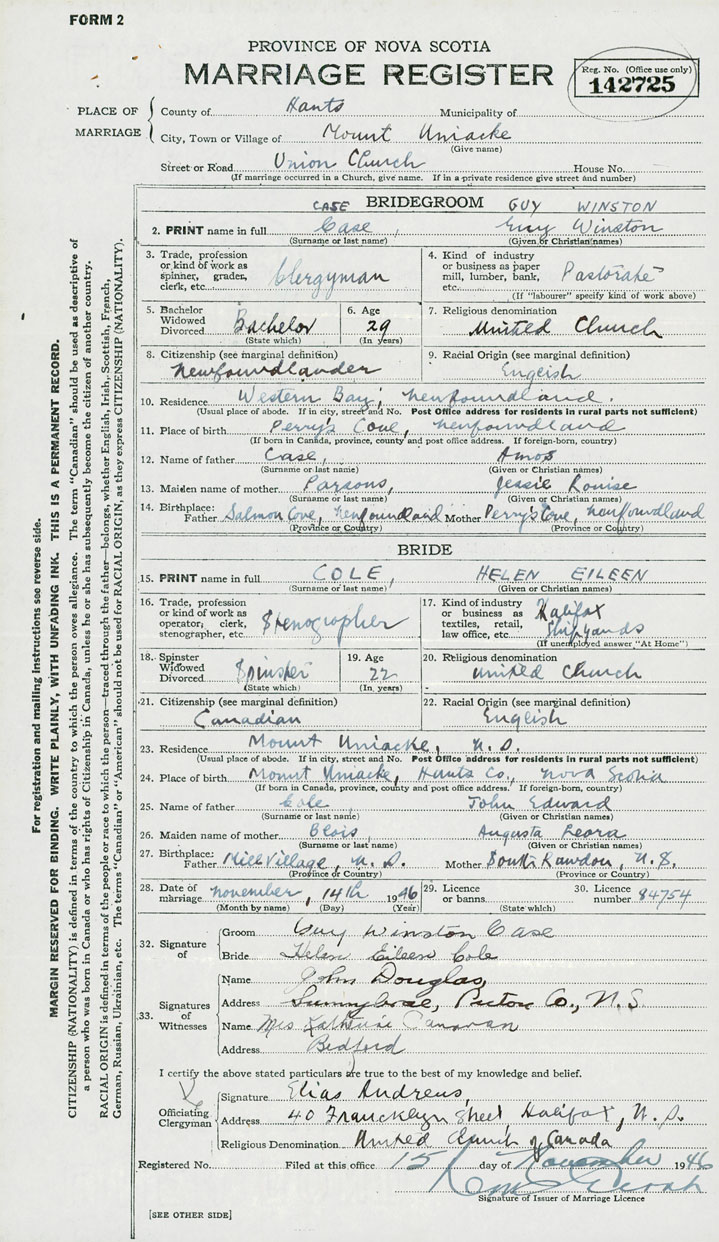 FORM 2
PROVINCE OF NOVA SCOTIA
MARRIAGE REGISTER
Reg. No. (Office use only)
142725
PLACE OF MARRIAGE
County of Hants Municipality of
City, Town or Village of Mount Uniacke
(Give name)
Street or Road Union Church House No.
(If marriage occurred in a Church, give name. If in a private residence give street and number)
CASE BRIDEGROOM GUY WINSTON
2. PRINT name in full Case, Guy Winston
(Surname or last name) (Given or Christian names)
3. Trade, profession or kind of work as spinner, grader, clerk, etc. Clergyman
4. Kind of industry or business as paper mill, lumber, bank, etc. Pastorate
(If "labourer" specify kind of work above)
5. Bachelor Widowed Divorced Bachelor
(State which)
6. Age 29
(In years)
7. Religious denomination United Church
8. Citizenship (see marginal definition) Newfoundlander
9. Racial Origin (see marginal definition) English
10. Residence Western Bay, Newfoundland.
(Usual place of abode. If in city, street and No. Post Office address for residents in rural parts not sufficient)
11. Place of birth Perry's Cove, Newfoundland
(If born in Canada, province, county and post office address. If foreign-born, country)
12. Name of father Case, Amos
(Surname or last name) (Given or Christian names)
13. Maiden name of mother Parsons, Jessie Louise
(Surname or last name) (Given or Christian names)
14. Birthplace: Father Salmon Cove, Newfoundland Mother Perry's Cove, Newfoundland
(Province or Country) (Province or Country)
BRIDE
15. PRINT name in full COLE, HELEN EILEEN
(Surname or last name) (Given or Christian names)
16. Trade, profession or kind of work as operator, clerk, stenographer, etc. Stenographer
17. Kind of industry or business as textiles, retail, law office, etc. Halifax Shipyards
(If unemployed answer "At Home")
18. Spinster Widowed Divorced Spinster
(State which)
19. Age 22
(In years)
20. Religious denomination United Church
21. Citizenship (see marginal definition) Canadian
22. Racial Origin (see marginal definition) English
23. Residence Mount Uniacke, N.S.
(Usual place of abode. If in city, street and No. Post Office address for residents in rural parts not sufficient)
24. Place of birth Mount Uniacke, Hants Co., Nova Scotia
(If born in Canada, province, county and post office address. If foreign-born, country)
25. Name of father Cole John Edward
(Surname or last name) (Given or Christian names)
26. Maiden name of mother Blois Augusta Leora
(Surname or last name) (Given or Christian names)
27. Birthplace: Father Mill Village, N.S. Mother South Rawdon, N.S.
(Province or Country) (Province or Country)
28. Date of marriage November, 14th 1946
(Month by name) (Day) (Year)
29. Licence or banns
(State which)
30. Licence number 84754
32. Signature of
Groom Guy Winston Case
Bride Helen Eileen Cole
33. Signatures of Witnesses
Name John Douglas,
Address Sunnybrae, Pictou Co., N.S.
Name Mrs Katherine Canavan
Address Bedford
I certify the above stated particulars are true to the best of my knowledge and belief.
Officiating Clergyman
Signature Elias Andrews,
Address 40 Francklyn Street Halifax, N.S.
Religious Denomination United Church of Canada
Registered No. Filed at this office 15 day of November 1946
Signature of Issuer of Marriage Licence
[SEE OTHER SIDE]
For registration and mailing instructions see reverse side.
MARGIN RESERVED FOR BINDING. WRITE PLAINLY, WITH UNFADING INK. THIS IS A PERMANENT RECORD.
CITIZENSHIP (NATIONALITY) is defined in terms of the country to which the person owes allegiance. The term "Canadian" should be used as descriptive of
a person who was born in Canada or who has rights of Citizenship in Canada, unless he or she has subsequently become the citizen of another country.
RACIAL ORIGIN is defined in terms of the people or race to which the person—traced through the father—belongs, whether English, Irish, Scottish, French,
German, Russian, Ukrainian, etc. The terms "Canadian" or "American" should not be used for RACIAL ORIGIN, as they express CITIZENSHIP (NATIONALITY).